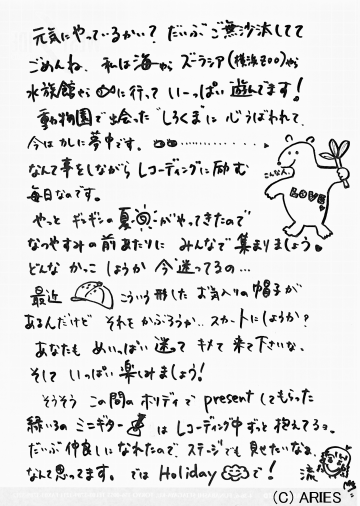 元気にやっているかい？ だいぶご無沙汰してて
ごめんね。私は海やら ズーラシア(横浜ZOO)やら
水族館やらに行って いーっぱい 遊んでます！
動物園で出会った"しろくま"に 心うばわれて、
今は かしに夢中です。
こんな人。
LOVE
なんて事をしながら レコーディングに励む
毎日なのです。
やっと ギンギンの夏がやってきたので
なつやすみの前あたりに みんなで 集まりましょう。
どんな かっこ しようか 今 迷ってるの…
最近 こういう形した お気入りの帽子が
あるんだけど それをかぶろうか‥スカートにしようか？
あなたも めいっぱい 迷って キメて 来て下さいな。
そして いっぱい 楽しみましょう！
そうそう この間の ホリディで present してもらった
緑いろのミニギター は レコーディング中 ずっと 抱えてるヨ。
だいぶ 仲良しになれたので、ステージでも 見せたいなぁ、
なんて思ってます。 では Holiday で！ 流
(C) ARIES